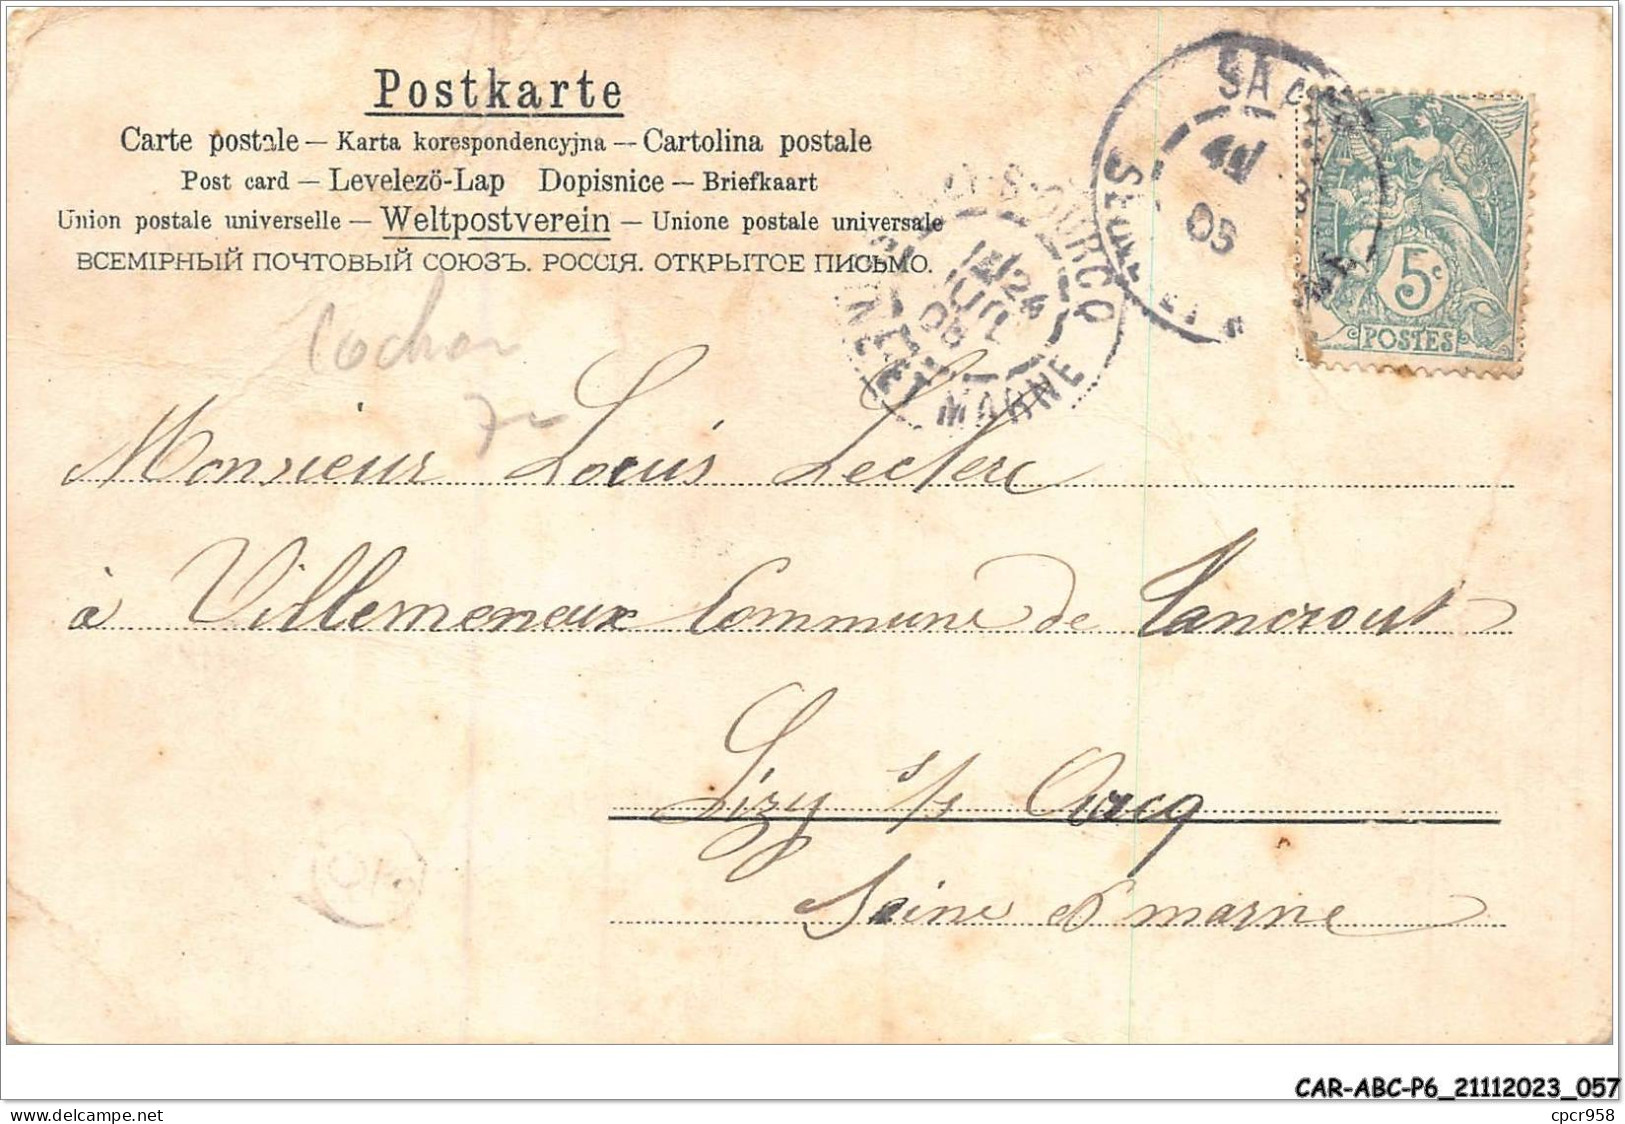 Postkarte
Carte postale — Karta korespondencyjna — Cartolina postale
Post card — Levelezö-Lap Dopisnice — Briefkaart
Union postale universelle — Weltpostverein — Unione postale universale
ВСЕМІРНЫЙ ПОЧТОВЫЙ СОЮЗЪ. РОССІЯ. ОТКРЫТОЕ ПИСЬМО.
05
S-OURCQ
24
JUIL
05
MARNE
5c
POSTES
Cochon
Monsieur Louis Leclerc
à Villemeneux Commune de Tancrout
Lizy s/s Ourcq
Seine et marne
CAR-ABC-P6_21112023_057
www.delcampe.net
cpcr958